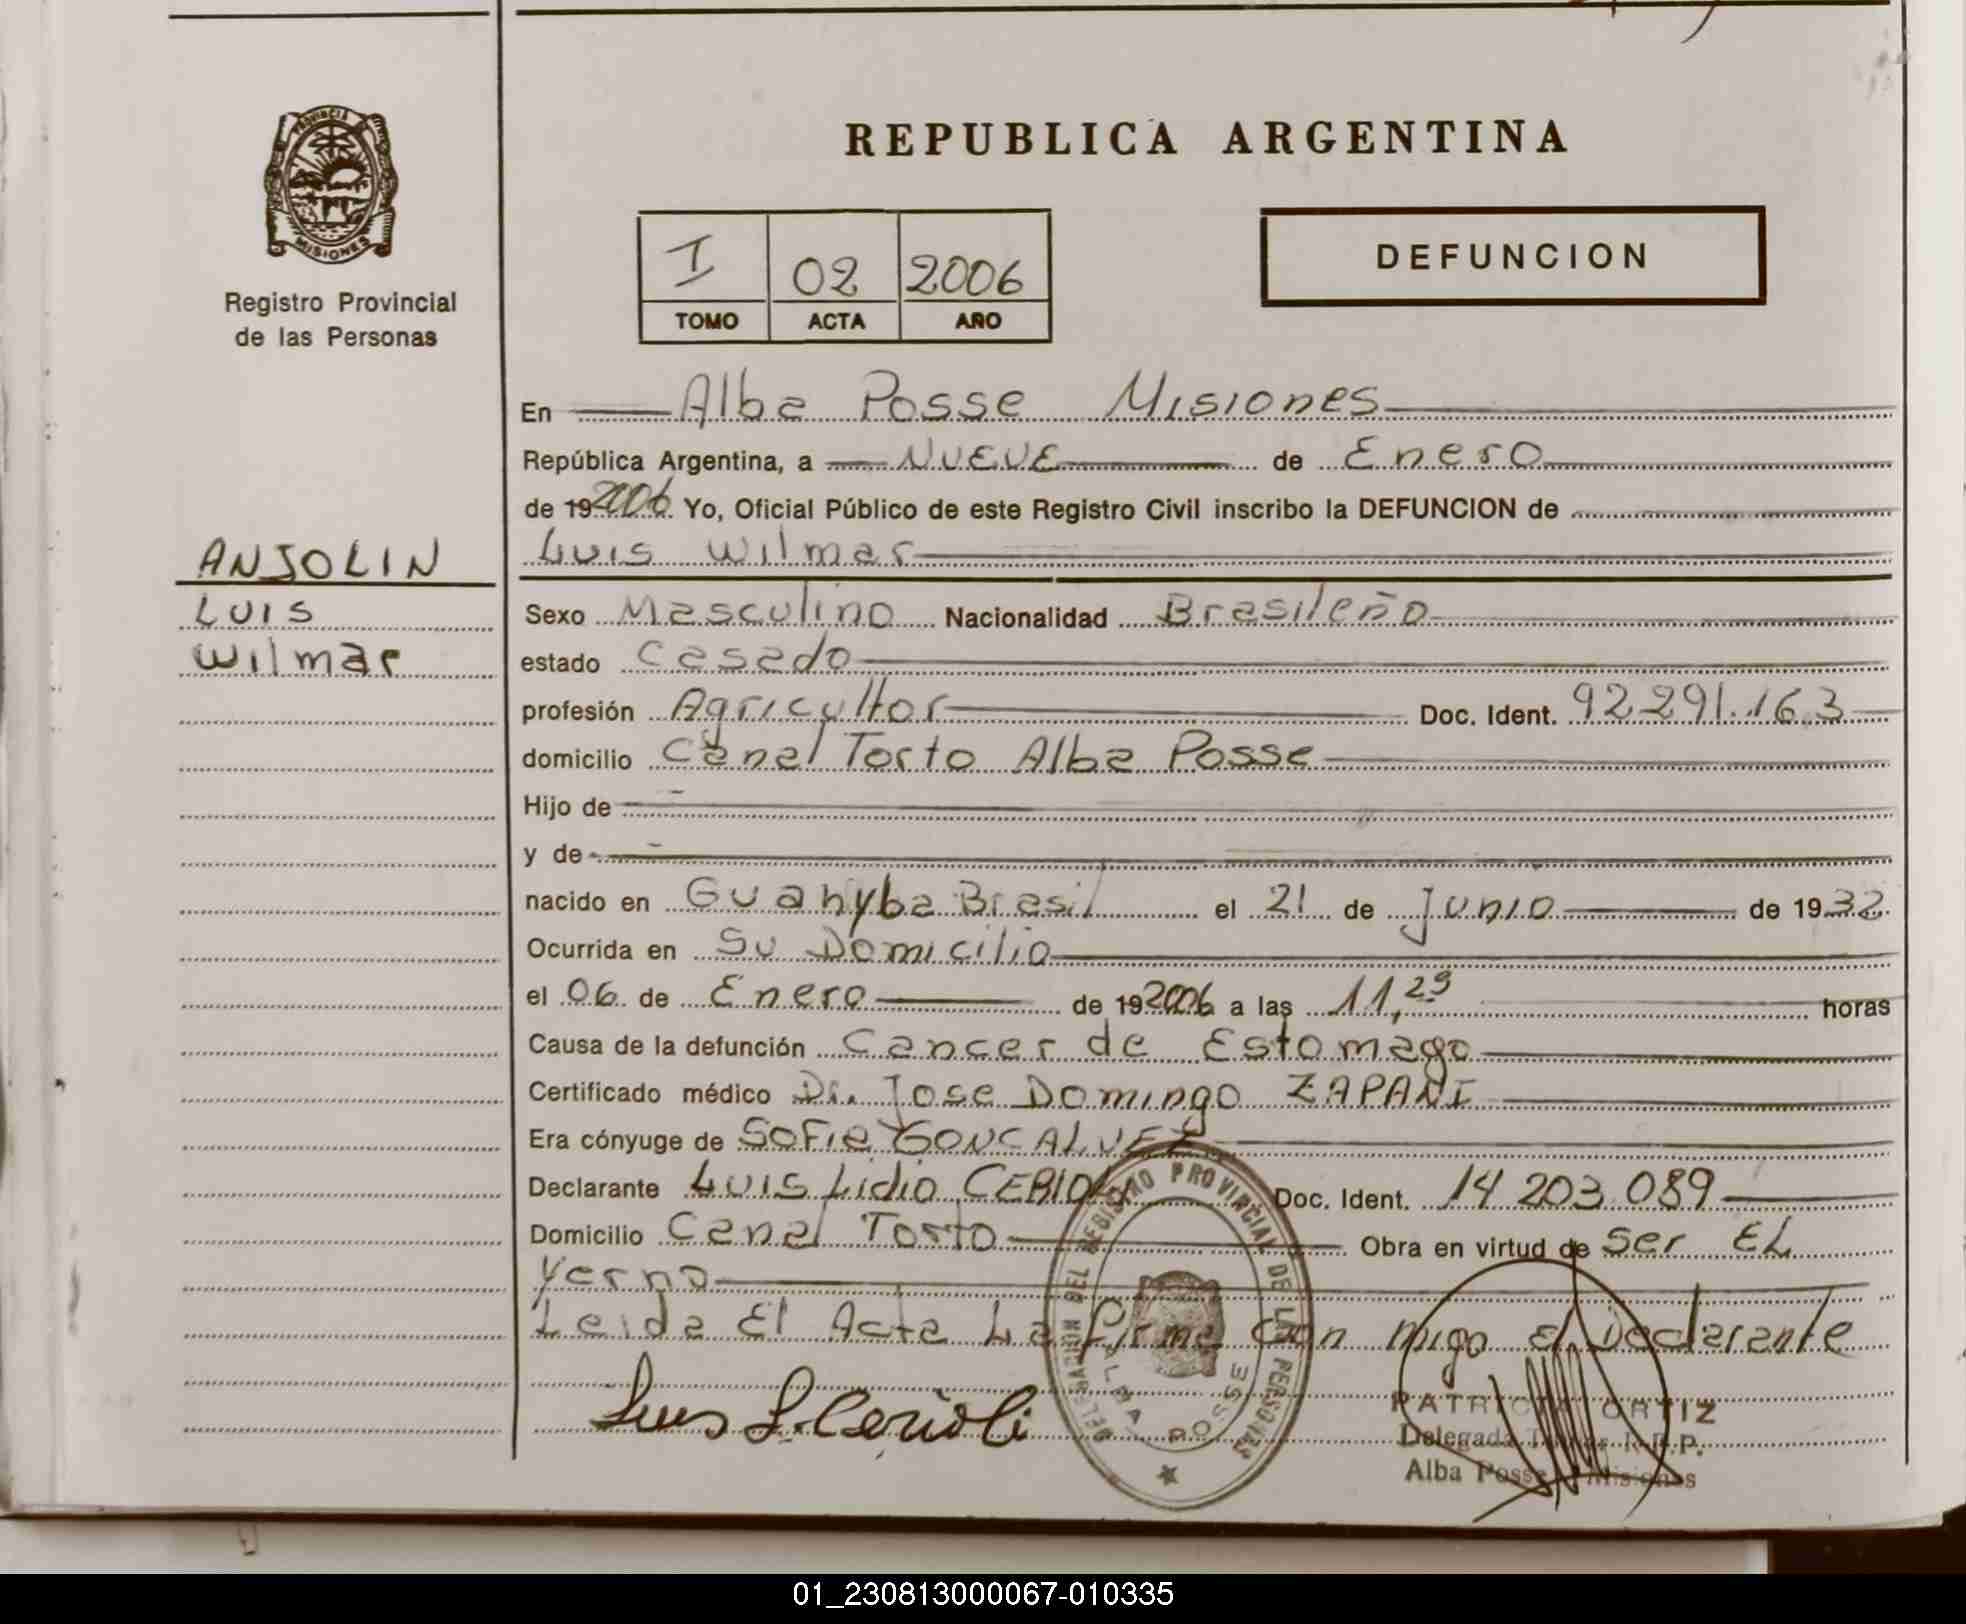 REPUBLICA ARGENTINA
PROVINCIA DE MISIONES
Registro Provincial
de las Personas
I 02 2006
TOMO ACTA AÑO
DEFUNCION
En Alba Posse Misiones
República Argentina, a NUEVE de Enero
de 19 2006 Yo, Oficial Público de este Registro Civil inscribo la DEFUNCION de
Luis Wilmar
ANJOLIN
LUIS
Wilmar
Sexo Masculino Nacionalidad Brasileño
estado Casado
profesión Agricultor Doc. Ident. 92291.163
domicilio Canal Torto Alba Posse
Hijo de
y de
nacido en Guahyba Brasil el 21 de Junio de 1932
Ocurrida en Su Domicilio
el 06 de Enero de 19 2006 a las 11,29 horas
Causa de la defunción Cancer de Estomago
Certificado médico Dr. Jose Domingo ZAPANI
Era cónyuge de Sofia GONCALVEZ
Declarante Luis Lidio CERIOLI Doc. Ident. 14 203 089
Domicilio Canal Torto Obra en virtud de Ser EL
Yerno
Leida El Acta La firma Con migo El Declarante
Luis L. Cerioli
DELEGACION DEL REGISTRO PROVINCIAL DE LAS PERSONAS
ALBA POSSE
PATRICIA ORTIZ
Delegada Titular R.P.P.
Alba Posse Misiones
01_230813000067-010335